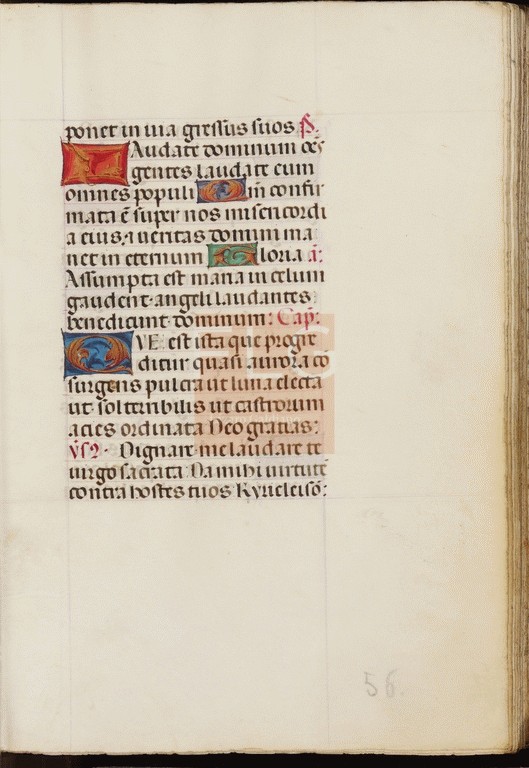 ponet in uia gressus suos p̃s.
LAudate dominum oẽs
gentes laudate eum
omnes populi Qm̃ confir
mata ẽ super nos misericordi
a eius ⁊ ueritas domini ma
net in eternum Gloria ã:
Assumpta est maria in celum
gaudent angeli laudantes
benedicunt dominum: Cap̃:
QVE est ista que progre
ditur quasi aurora cõ
surgens pulcra ut luna electa
ut sol terribilis ut castrorum
acies ordinata Deo gratias:
Dignare me laudare te
uirgo sacrata Da mihi uirtutẽ
contra hostes tuos Kyrieleisõ:
56.